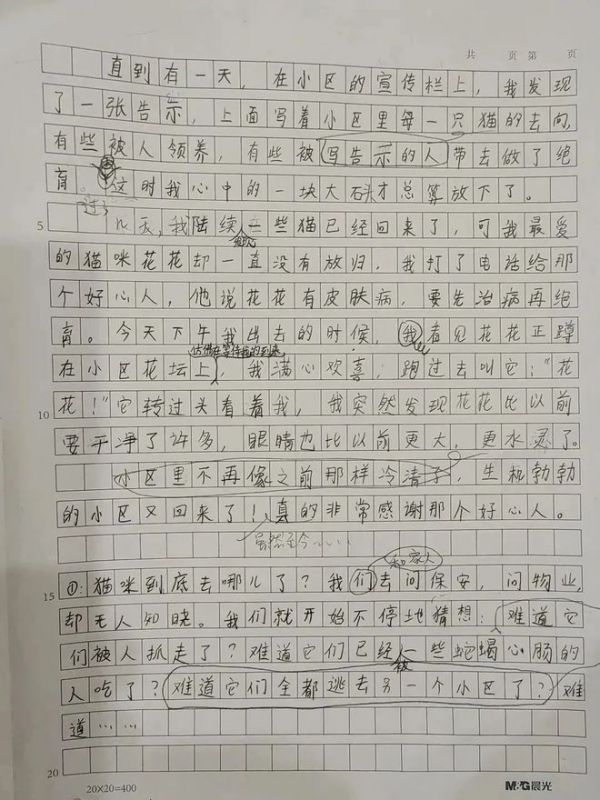 共 页 第 页
直到有一天,在小区的宣传栏上,我发现
了一张告示,上面写着小区里每一只猫的去向,
有些被人领养,有些被写告示的人带去做了绝
育。这时我心中的一块大石头才总算放下了。
过了
5 几天,我陆续一些猫已经回来了,可我最爱
发现
的猫咪花花却一直没有放归,我打了电话给那
个好心人,他说花花有皮肤病,要先治病再绝
育。今天下午我出去的时候,我看见花花正蹲
仿佛在等待我的到来
在小区花坛上,我满心欢喜,跑过去叫它:"花
10 花!"它转过头看着我,我突然发现花花比以前
要干净了许多,眼睛也比以前更大,更水灵了。
小区里不再像之前那样冷清了,生机勃勃
的小区又回来了!真的非常感谢那个好心人。
虽然至今……
和家人
15 ①:猫咪到底去哪儿了?我们去问保安,问物业,
却无人知晓。我们就开始不停地猜想:难道它
们被人抓走了?难道它们已经一些蛇蝎心肠的
被
人吃了?难道它们全都逃去另一个小区了?难
道……
20
20×20=400
M&G晨光